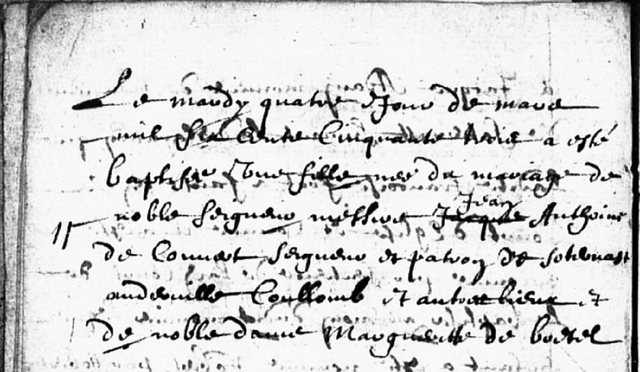 Le mardy quatre Jour de mars
mil six cents Cinquante trois a esté
baptisée Une fille née du mariage de
noble seigneur messire Jean Anthoine
de Couvert seigneur et patron de sotevast
auderville Coullomb et autres lieux et
de noble dame Marguerite de boetel